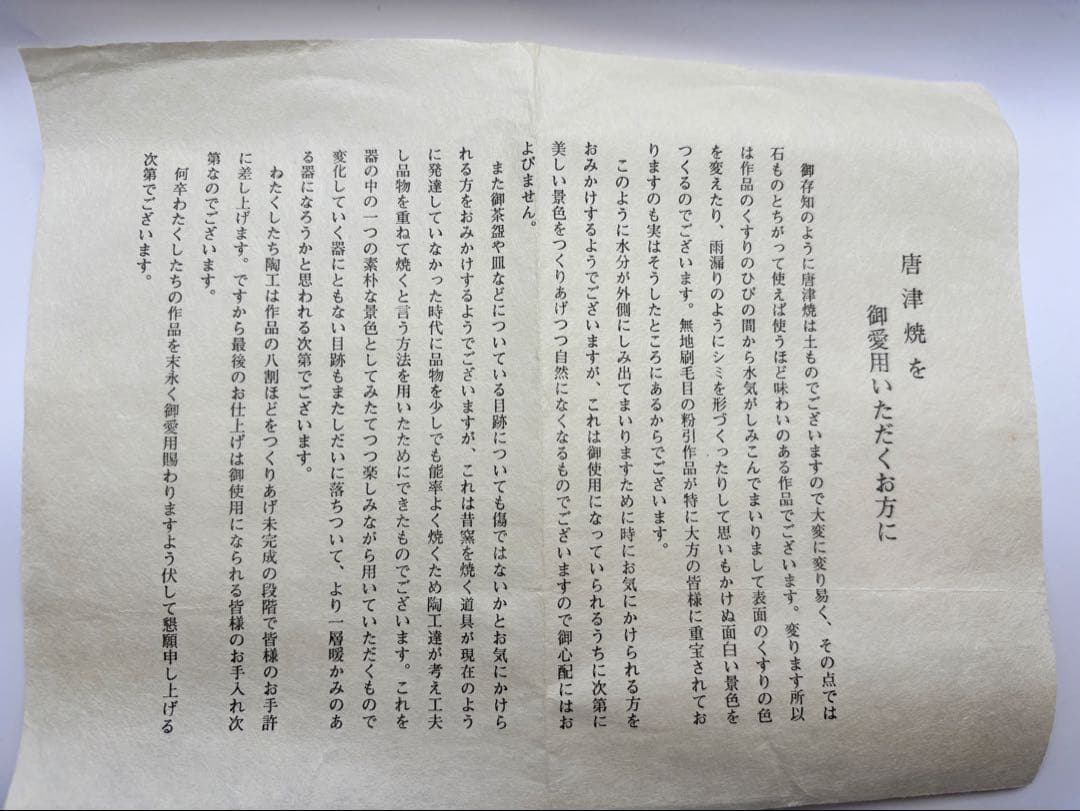 唐津焼を
御愛用いただくお方に
御存知のように唐津焼は土ものでございますので大変に変り易く、その点では
石ものとちがって使えば使うほど味わいのある作品でございます。変ります所以
は作品のくすりのひびの間から水気がしみこんでまいりまして表面のくすりの色
を変えたり、雨漏りのようにシミを形づくったりして思いもかけぬ面白い景色を
つくるのでございます。無地刷毛目の粉引作品が特に大方の皆様に重宝されてお
りますのも実はそうしたところにあるからでございます。
このように水分が外側にしみ出てまいりますために時にお気にかけられる方を
おみかけするようでございますが、これは御使用になっていられるうちに次第に
美しい景色をつくりあげつつ自然になくなるものでございますので御心配にはお
よびません。
また御茶盌や皿などについている目跡についても傷ではないかとお気にかけら
れる方をおみかけするようでございますが、これは昔窯を焼く道具が現在のよう
に発達していなかった時代に品物を少しでも能率よく焼くため陶工達が考え工夫
し品物を重ねて焼くと言う方法を用いたためにできたものでございます。これを
器の中の一つの素朴な景色としてみたてつつ楽しみながら用いていただくもので
変化していく器にともない目跡もまたしだいに落ちついて、より一層暖かみのあ
る器になろうかと思われる次第でございます。
わたくしたち陶工は作品の八割ほどをつくりあげ未完成の段階で皆様のお手許
に差し上げます。ですから最後のお仕上げは御使用になられる皆様のお手入れ次
第なのでございます。
何卒わたくしたちの作品を末永く御愛用賜わりますよう伏して懇願申し上げる
次第でございます。